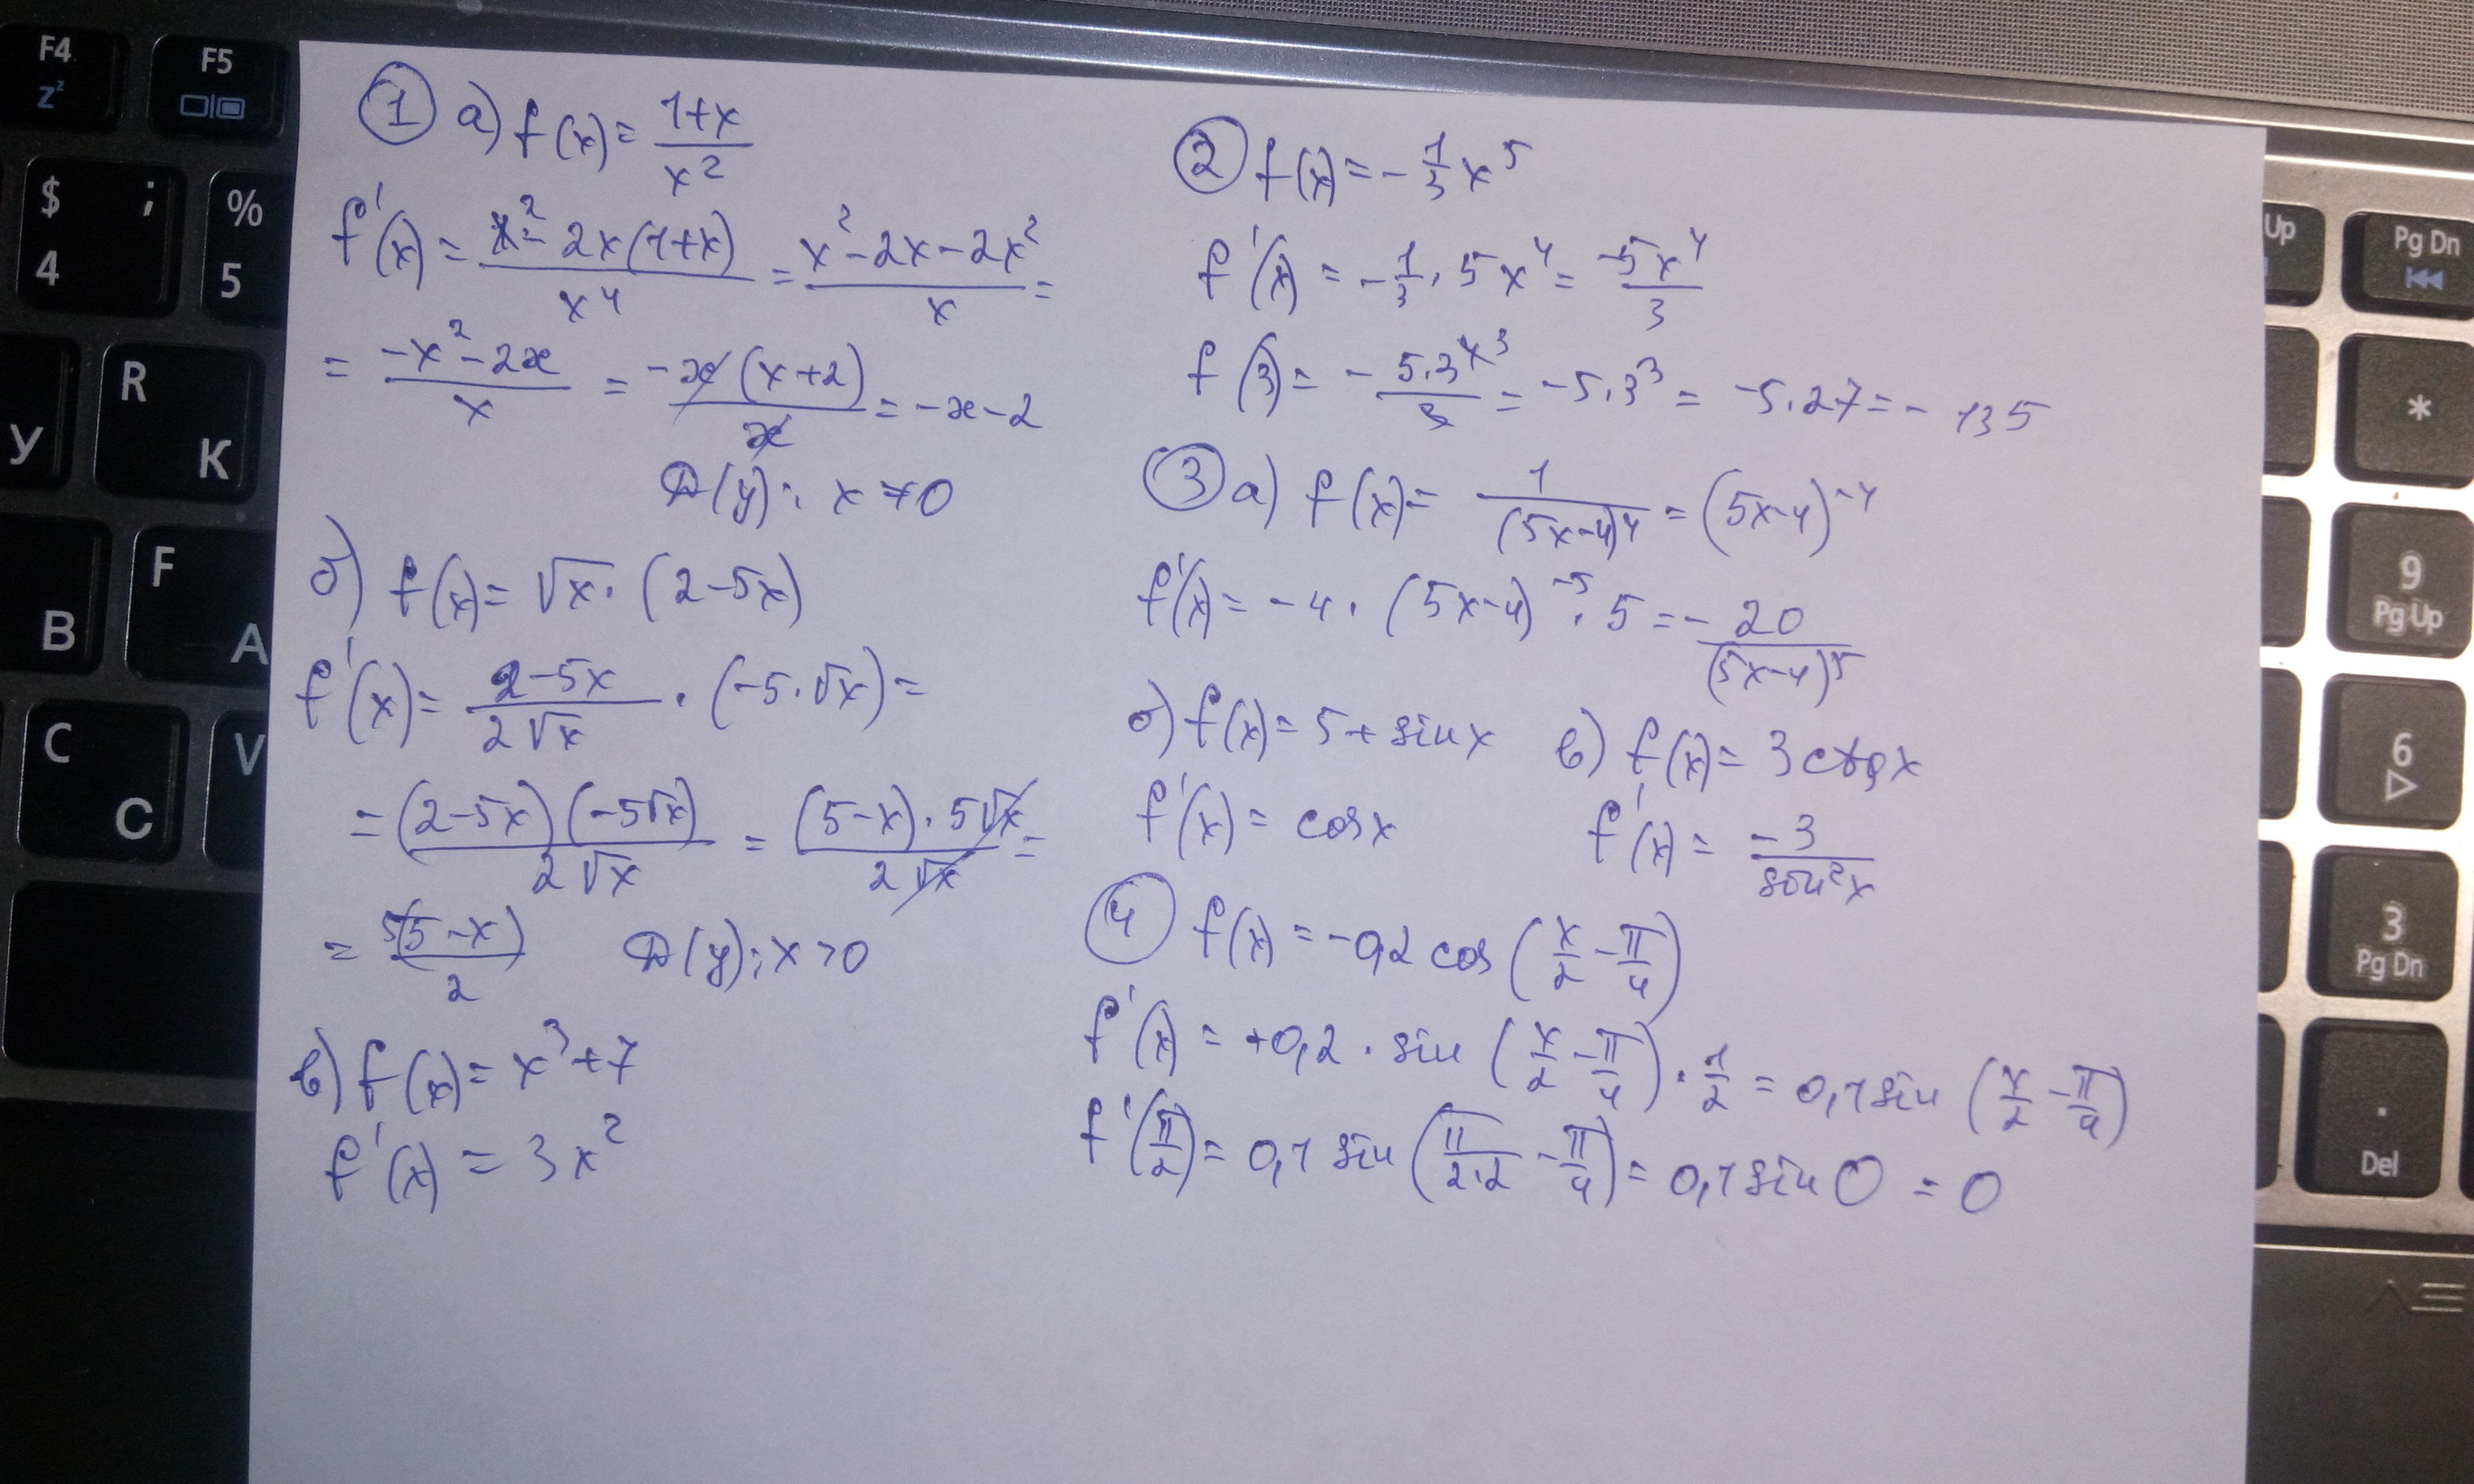 ① а) f(x) = (1+x)/x²
f'(x) = (x² - 2x(1+x))/x⁴ = (x² - 2x - 2x²)/x =
= (-x² - 2x)/x = (-x(x+2))/x = -x - 2
D(y): x ≠ 0
б) f(x) = √x · (2-5x)
f'(x) = (2-5x)/(2√x) · (-5·√x) =
= ((2-5x)(-5√x))/(2√x) = ((5-x)·5√x)/(2√x) =
= 5(5-x)/2 D(y): x > 0
в) f(x) = x³+7
f'(x) = 3x²
② f(x) = -1/3 x⁵
f'(x) = -1/3 · 5x⁴ = -5x⁴/3
f(3) = -(5·3⁴ ³)/3 = -5·3³ = -5·27 = -135
③ а) f(x) = 1/(5x-4)⁴ = (5x-4)⁻⁴
f'(x) = -4 · (5x-4)⁻⁵ · 5 = -20/(5x-4)⁵
б) f(x) = 5 + sinx в) f(x) = 3ctgx
f'(x) = cosx f'(x) = -3/sin²x
④ f(x) = -0,2 cos(x/2 - π/4)
f'(x) = +0,2 · sin(x/2 - π/4) · 1/2 = 0,1sin(x/2 - π/4)
f'(π/2) = 0,1 sin(π/(2·2) - π/4) = 0,1sin0 = 0
F4
zᶻ
F5
$ ;
4
%
5
У
R
К
В
F
А
C
С
V
Up
Pg Dn
*
9
Pg Up
6
3
Pg Dn
.
Del